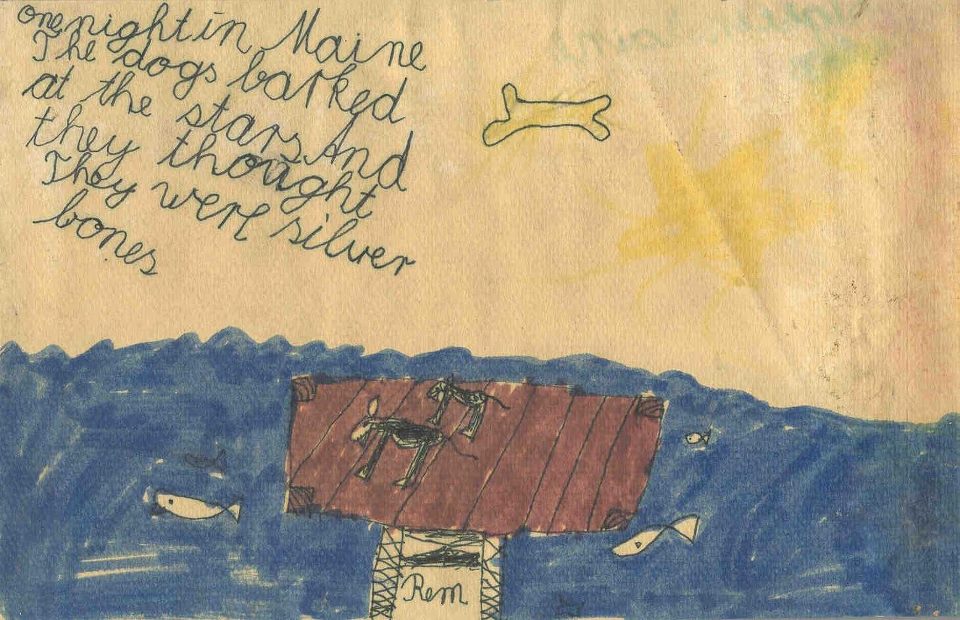 one night in Maine
The dogs barked
at the stars And
they thought
They were silver
bones
Rem